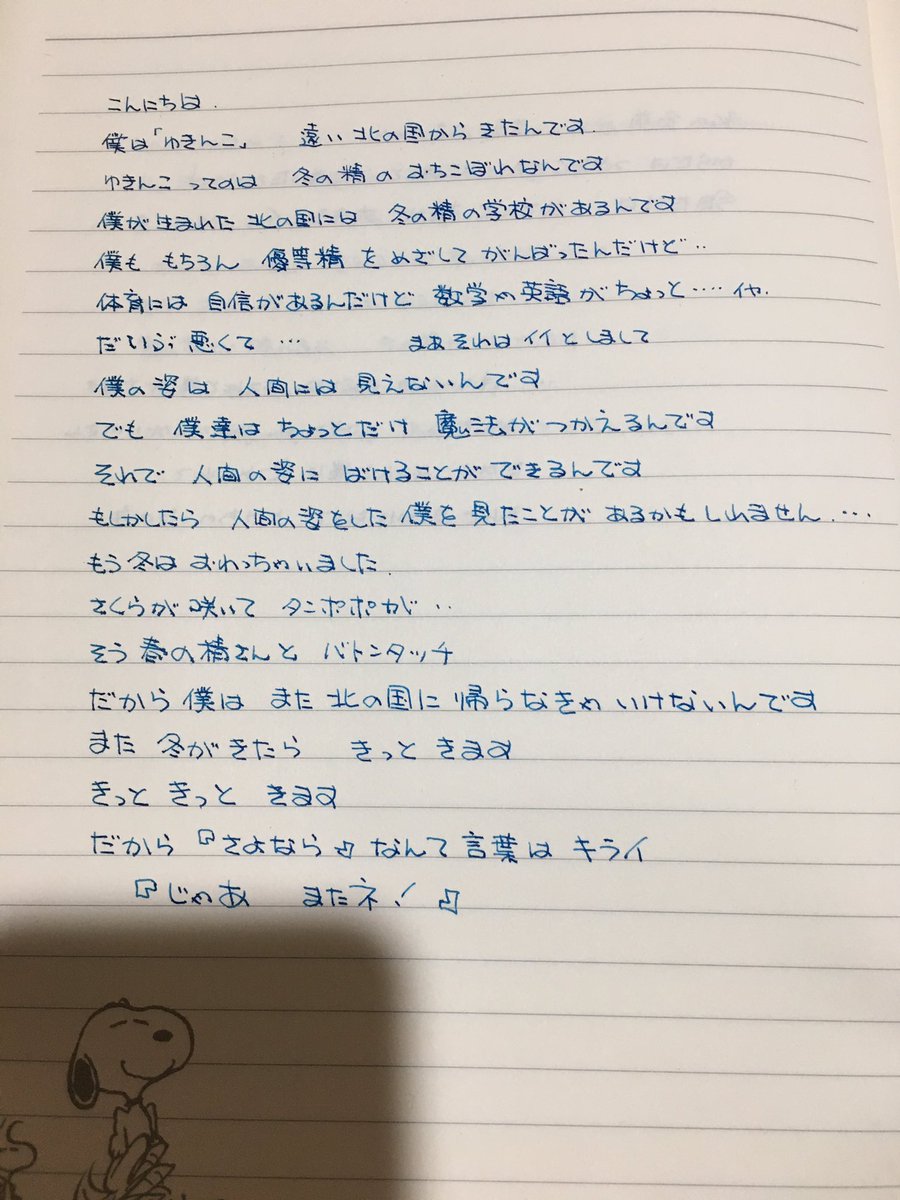 こんにちは.
僕は「ゆきんこ」 遠い北の国からきたんです.
ゆきんこってのは 冬の精のおちこぼれなんです
僕が生まれた北の国には 冬の精の学校があるんです
僕も もちろん 優等精をめざしてがんばったんだけど‥
体育には自信があるんだけど 数学や英語がちょっと‥‥イヤ.
だいぶ悪くて… まあそれはイイとしまして
僕の姿は人間には見えないんです
でも 僕達はちょっとだけ 魔法がつかえるんです
それで 人間の姿に ばけることが できるんです
もしかしたら 人間の姿をした僕を見たことが あるかもしれません.…
もう冬は おわっちゃいました.
さくらが咲いて タンポポが‥
そう春の精さんと バトンタッチ
だから僕は また北の国に帰らなきゃ いけないんです
また 冬がきたら きっと きます
きっと きっと きます
だから『さよなら』なんて言葉は キライ
『じゃあ またネ!』